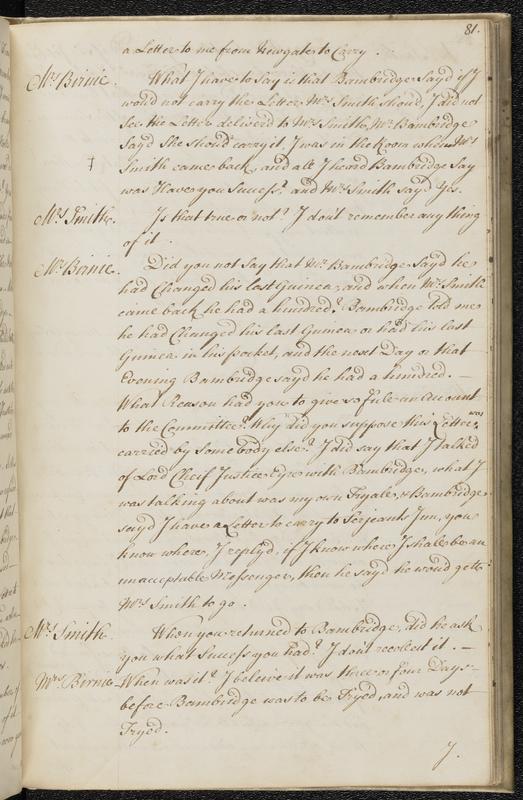 81.
a Letter to me from Newgate to Carry .
Mrs Birnie. What I have to Say is that Bambridge Sayd if I
would not carry the Letter Mrs Smith should, I did not
See the Letter deliver'd to Mrs Smith, Mr Bambridge
Sayd She shoud carry it, I was in the Room when Mrs
† Smith came back, and all I heard Bambridge Say
was Have you Success? and Mrs Smith sayd Yes.
Mrs Smith. Is that true or not? I don't remember any thing
of it .
Mrs Birnie. Did you not Say that Mr Bambridge Sayd he
had Changed his last Guinea, and when Mrs Smith
came back he had a hundred? Bambridge told me
he had Changed his last Guinea or had his last
Guinea in his pocket, and the next Day or that
Evening Bambridge sayd he had a hundred. —
What Reason had you to give so full an Account
to the Committee? Why did you suppose this Letter was
carried by Somebody else? I did say that I talked
of Lord Cheif Justice Eyre with Bambridge, what I
was talking about was my own Tryale, & Bambridge
sayd I have a Letter to carry to Serjeants Inn, you
know where, I reply'd, if I know where I shall be an
unacceptable Messenger, then he sayd he would gett
Mrs Smith to go .
Mrs Smith. When you returned to Bambridge, did he ask
you what Success you had? I don't recolect it . —
Mrs Birnie. When was it? I beleive it was three or four Days
before Bambridge was to be Tryed, and was not
Tryed.
J.